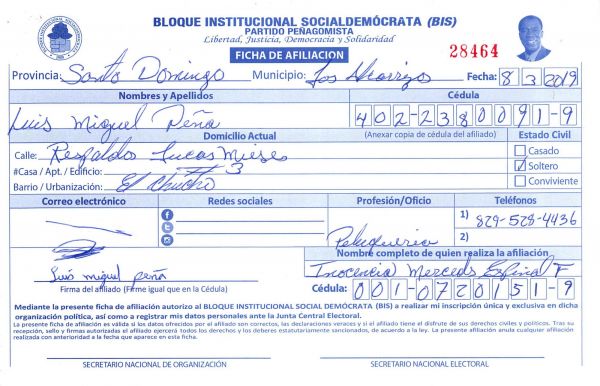 BLOQUE INSTITUCIONAL SOCIALDEMÓCRATA (BIS)
PARTIDO PEÑAGOMISTA
Libertad, Justicia, Democracia y Solidaridad
FICHA DE AFILIACION
28464
Provincia: Santo Domingo Municipio: Los Alcarrizos Fecha: 8/3/2019
Nombres y Apellidos Cédula
Luis Miguel Peña 402-2380091-9
Domicilio Actual (Anexar copia de cédula del afiliado) Estado Civil
Calle: Respaldo Lucas Mieses Casado
#Casa / Apt. / Edificio: # 3 Soltero
Barrio / Urbanización: El Chucho Conviviente
Correo electrónico Redes sociales Profesión/Oficio Teléfonos
1) 829-528-4436
Peluqueria 2)
Nombre completo de quien realiza la afiliación
Inocencia Mercedes Espinal F
Luis miguel peña
Firma del afiliado (Firme igual que en la Cédula) Cédula: 001-0720151-9
Mediante la presente ficha de afiliación autorizo al BLOQUE INSTITUCIONAL SOCIAL DEMÓCRATA (BIS) a realizar mi inscripción única y exclusiva en dicha
organización política, así como a registrar mis datos personales ante la Junta Central Electoral.
La presente ficha de afiliación es válida si los datos ofrecidos por el afiliado son correctos, las declaraciones veraces y si el afiliado tiene el disfrute de sus derechos civiles y políticos. Tras su
recepción, sello y firmas autorizadas el afiliado ejercerá todos los derechos y los deberes estatutariamente sancionados, de acuerdo a la ley. La presente afiliación anula cualquier afiliación
realizada con anterioridad a la fecha que aparece en esta ficha.
SECRETARIO NACIONAL DE ORGANIZACIÓN SECRETARIO NACIONAL ELECTORAL